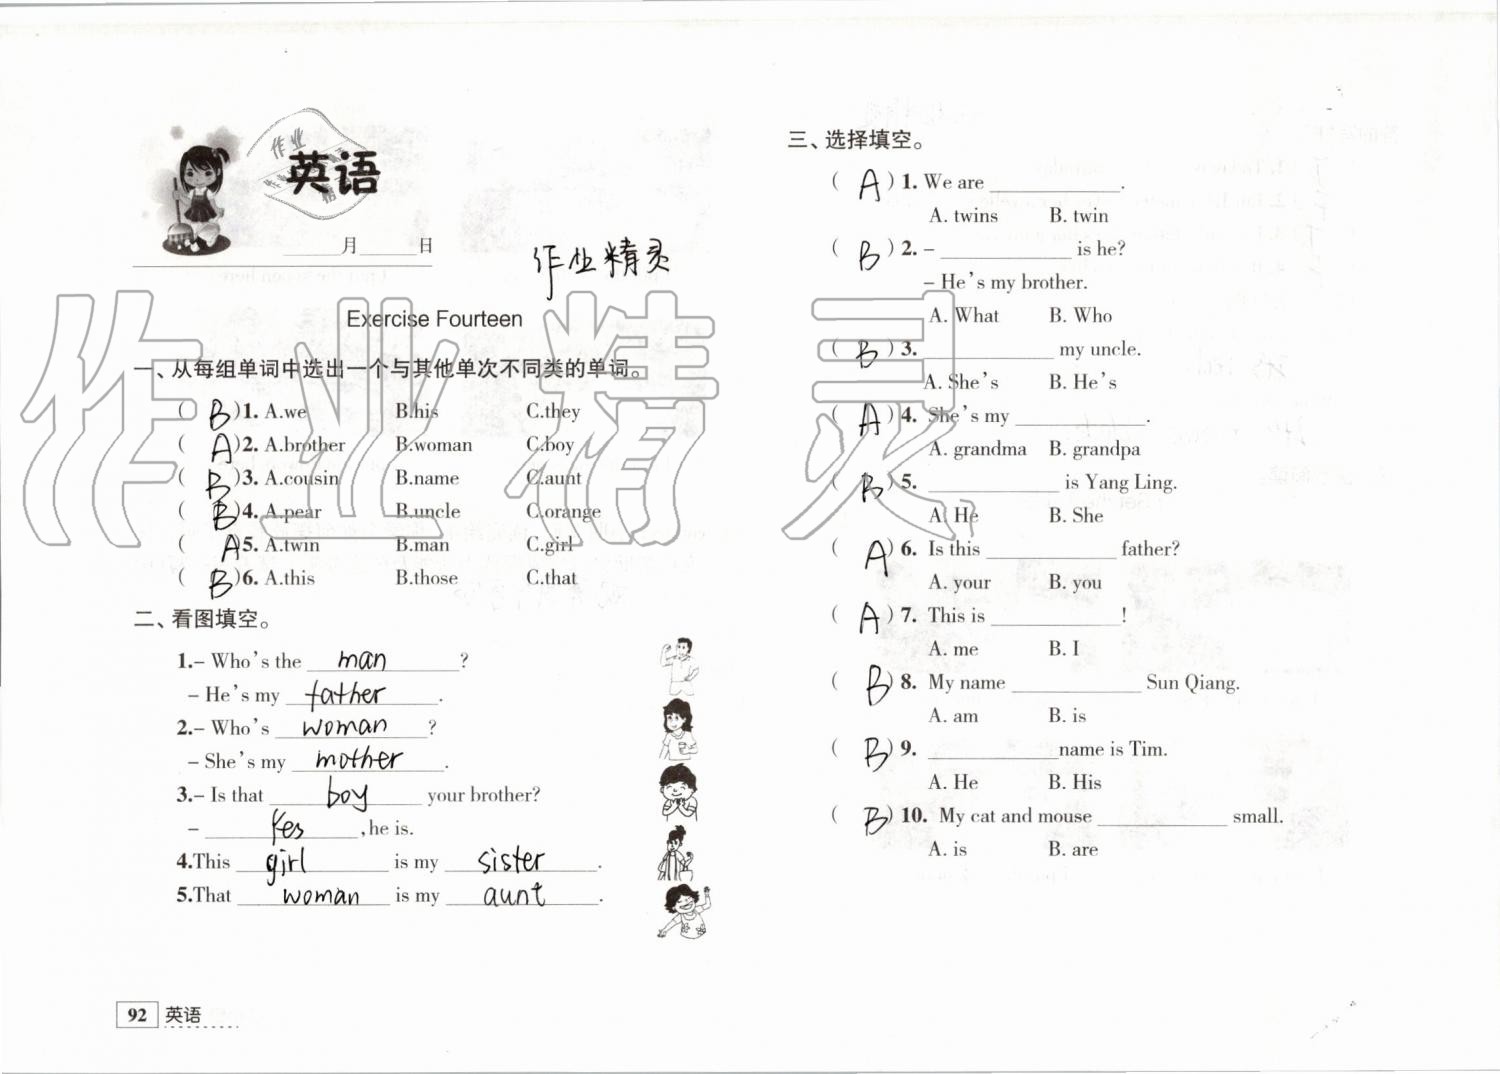 作业
英语
月 日
作业精灵
Exercise Fourteen
一、从每组单词中选出一个与其他单次不同类的单词。
( B )1. A.we B.his C.they
( A )2. A.brother B.woman C.boy
( B )3. A.cousin B.name C.aunt
( B )4. A.pear B.uncle C.orange
( A )5. A.twin B.man C.girl
( B )6. A.this B.those C.that
二、看图填空。
1.– Who's the man ?
– He's my father .
2.– Who's woman ?
– She's my mother .
3.– Is that boy your brother?
– Yes , he is.
4.This girl is my sister .
5.That woman is my aunt .
92 英语
三、选择填空。
( A ) 1. We are ____________ .
A. twins B. twin
( B ) 2. – ____________ is he?
– He's my brother.
A. What B. Who
( B ) 3. ____________ my uncle.
A. She's B. He's
( A ) 4. She's my ____________ .
A. grandma B. grandpa
( B ) 5. ____________ is Yang Ling.
A. He B. She
( A ) 6. Is this ____________ father?
A. your B. you
( A ) 7. This is ____________ !
A. me B. I
( B ) 8. My name ____________ Sun Qiang.
A. am B. is
( B ) 9. ____________ name is Tim.
A. He B. His
( B ) 10. My cat and mouse ____________ small.
A. is B. are
作业精灵